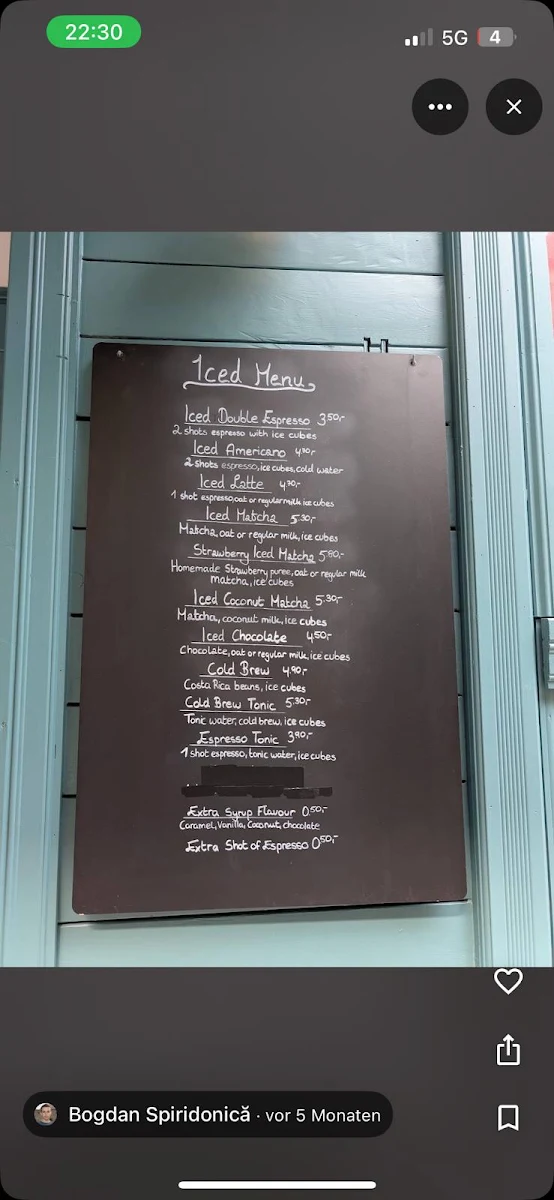 22:30
5G
4
Iced Menu
Iced Double Espresso 3⁵⁰,-
2 shots espresso with ice cubes
Iced Americano 4,
2 shots espresso, ice cubes, cold water
Iced Latte 4,
1 shot espresso, oat or regular milk, ice cubes
Iced Matcha 5³⁰,-
Matcha, oat or regular milk, ice cubes
Strawberry Iced Matcha 5⁸⁰,-
Homemade Strawberry puree, oat or regular milk
matcha, ice cubes
Iced Coconut Matcha 5³⁰,-
Matcha, coconut milk, ice cubes
Iced Chocolate 4⁵⁰,-
Chocolate, oat or regular milk, ice cubes
Cold Brew 4⁹⁰,-
Costa Rica beans, ice cubes
Cold Brew Tonic 5³⁰,-
Tonic water, cold brew, ice cubes
Espresso Tonic 3⁹⁰,-
1 shot espresso, tonic water, ice cubes
Extra Syrup Flavour 0⁵⁰,-
Caramel, Vanilla, Coconut, chocolate
Extra Shot of Espresso 0⁵⁰,-
Bogdan Spiridonică · vor 5 Monaten